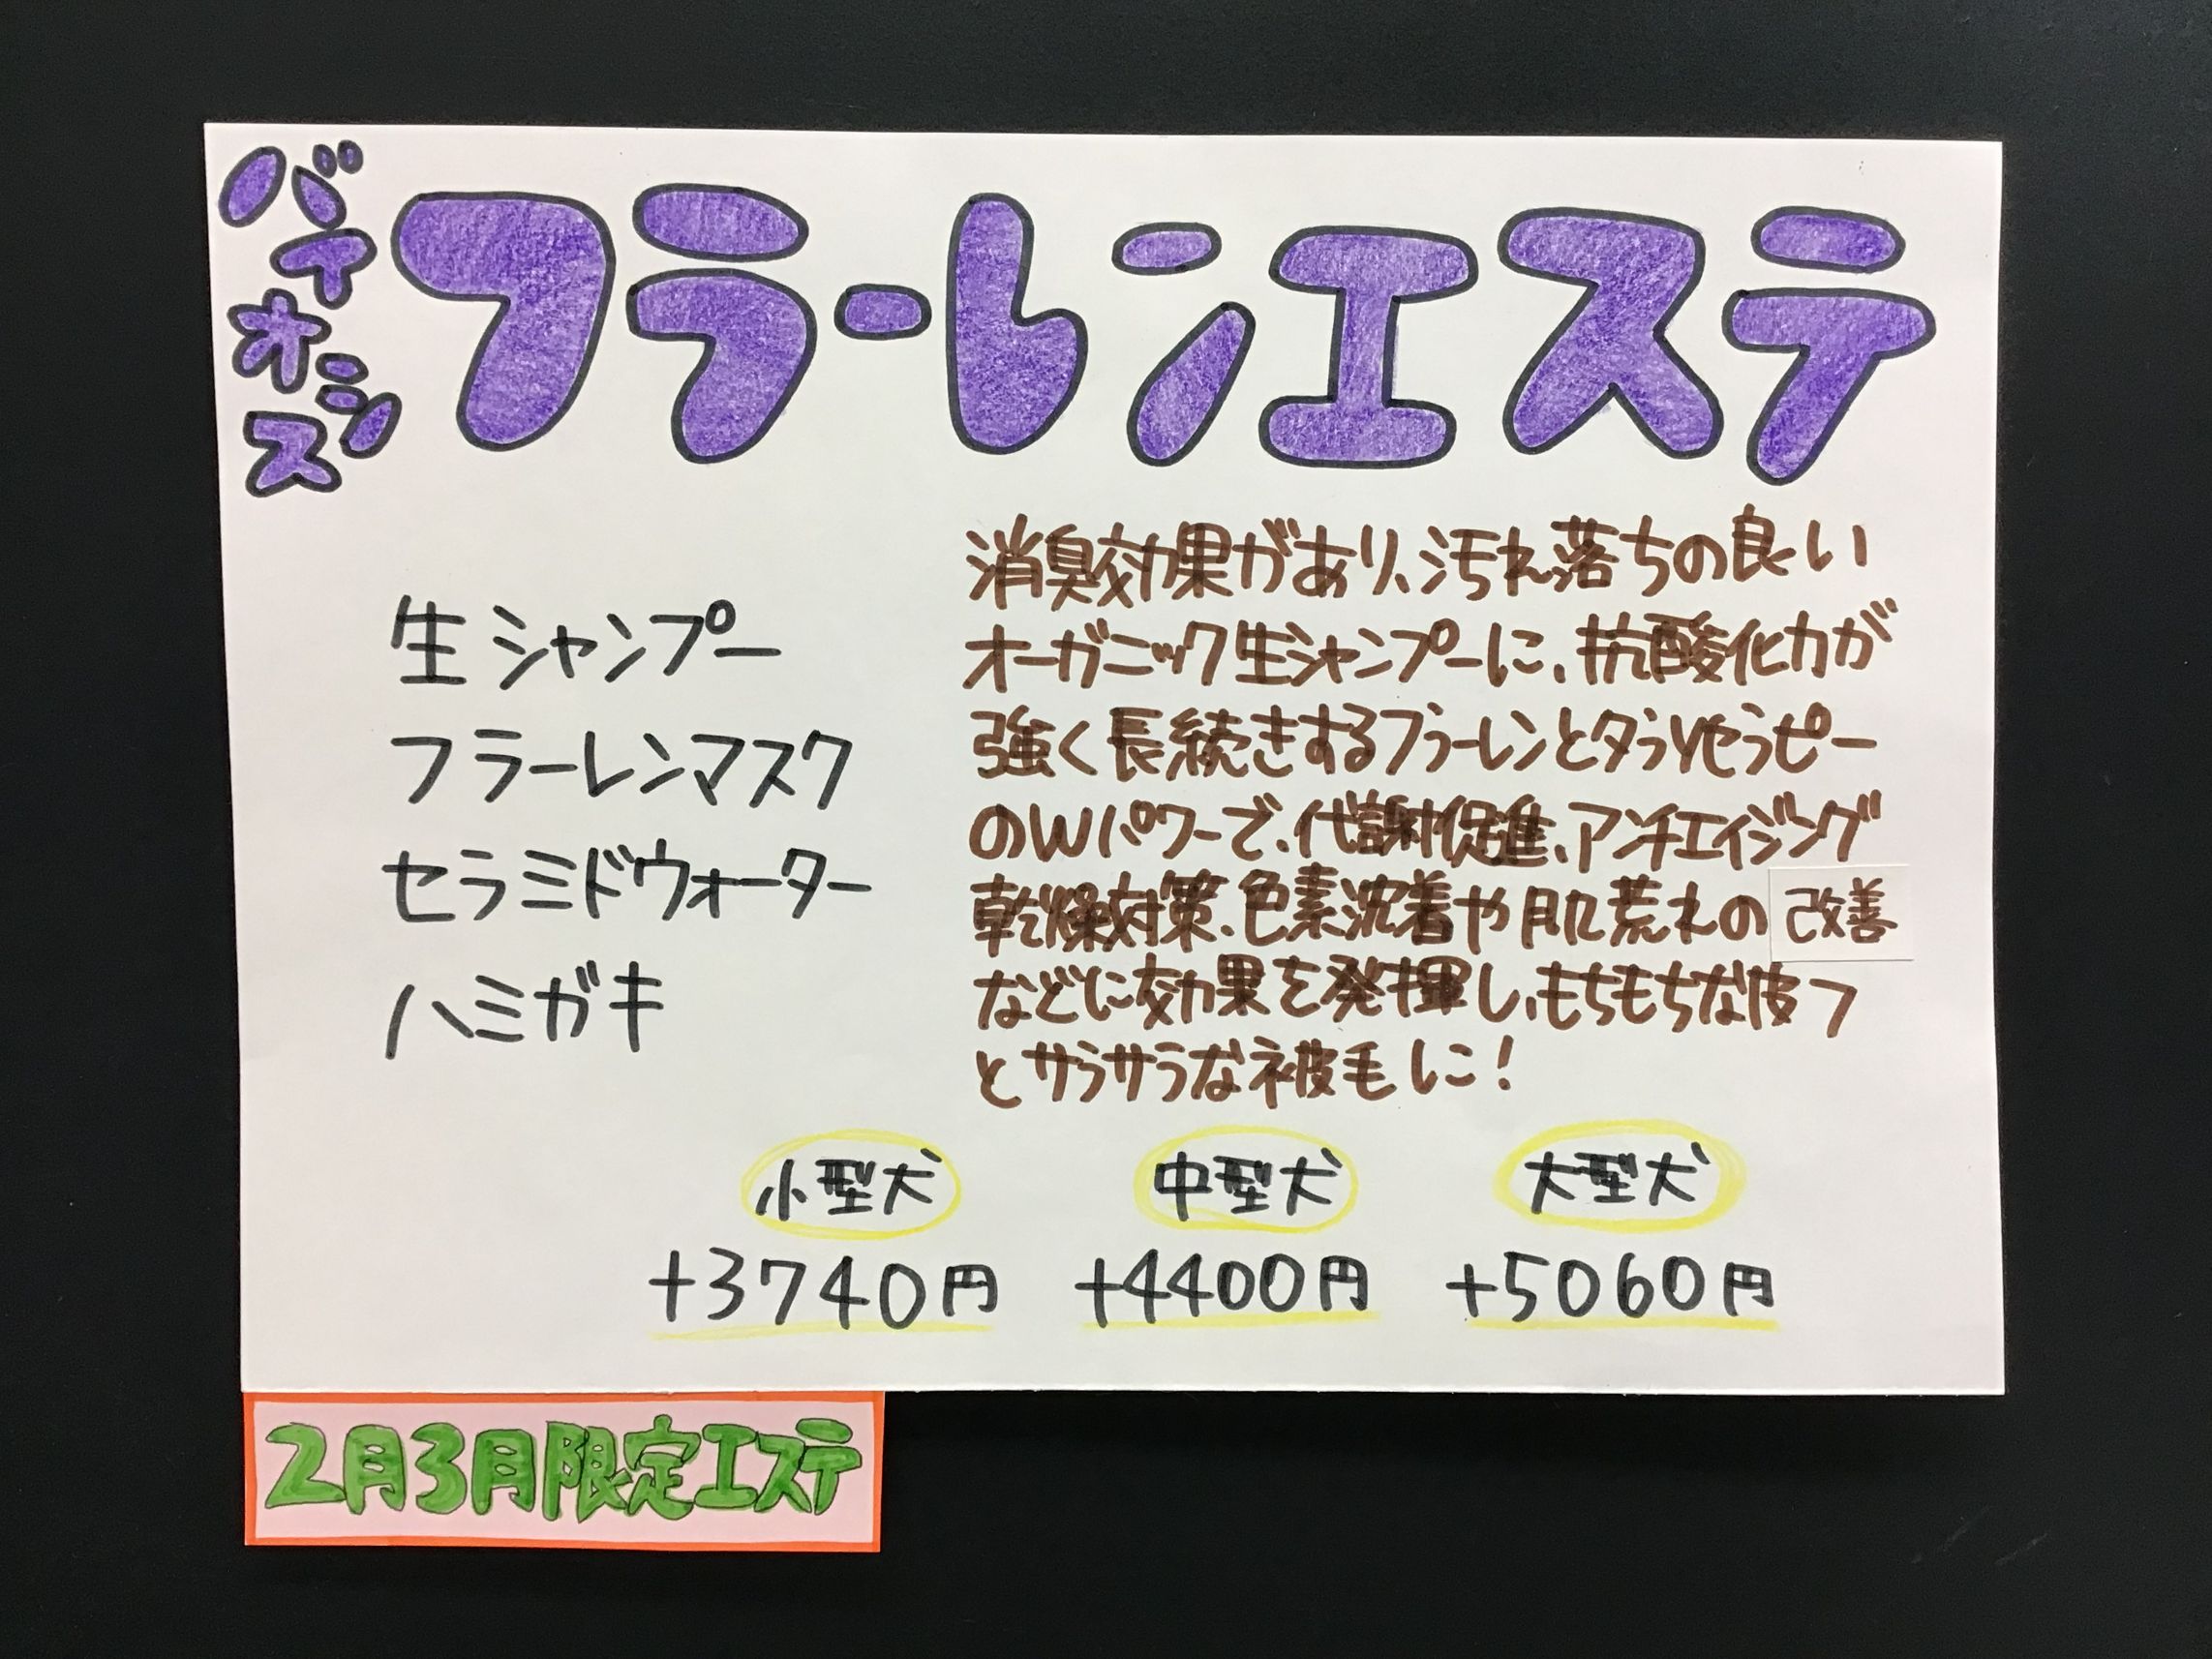 バイオシス
フラーレンエステ
生シャンプー
フラーレンマスク
セラミドウォーター
ハミガキ
消臭効果があり、汚れ落ちの良い
オーガニック生シャンプーに、抗酸化力が
強く長続きするフラーレンとタラソセラピー
のWパワーで、代謝促進、アンチエイジング
乾燥対策、色素沈着や肌荒れの改善
などに効果を発揮し、もちもちな皮フ
とサラサラな被毛に!
小型犬 中型犬 大型犬
+3740円 +4400円 +5060円
2月3月限定エステ